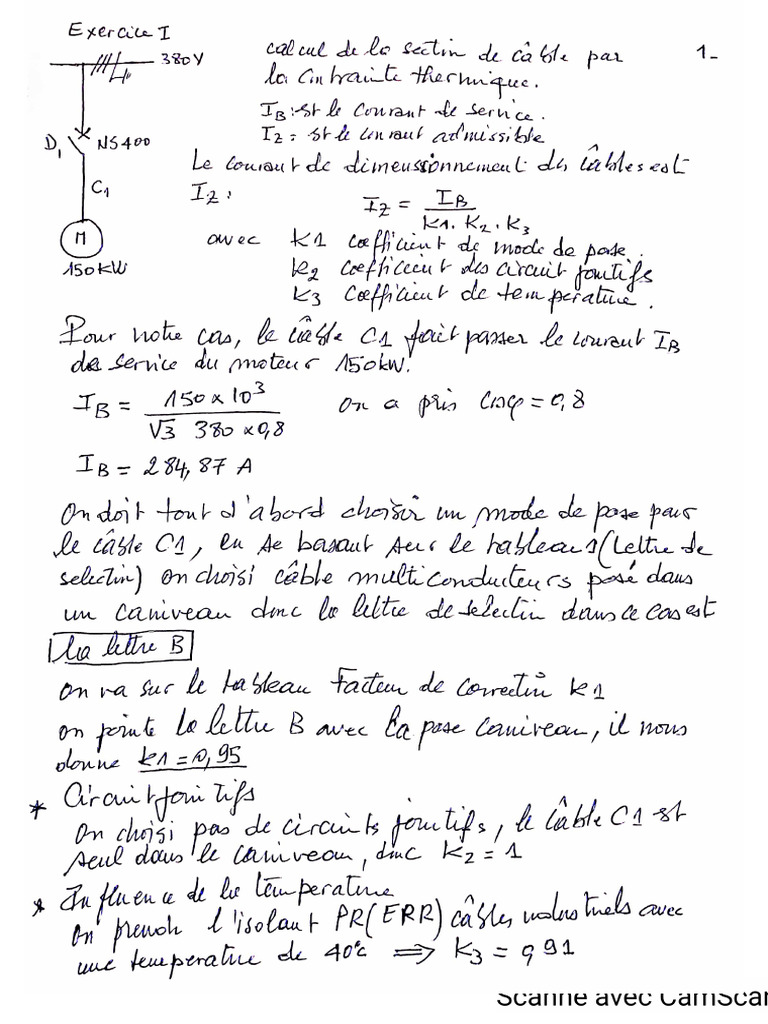 Exercice I
380V
D1 NS400
C1
M
150KW
1-
calcul de la section de câble par
la contrainte thermique.
IB : est le courant de service.
IZ : est le courant admissible
Le courant de dimensionnement des câbles est
IZ :
IZ = IB / (K1. K2. K3)
avec K1 coefficient de mode de pose.
K2 coefficient des circuit jointifs
K3 coefficient de température.
Pour notre cas, le câble C1 fait passer le courant IB
de service du moteur 150kW.
IB = 150 x 10³ / (√3 380 x 0,8) on a pris cosφ = 0,8
IB = 284,87 A
On doit tout d'abord choisir un mode de pose pour
le câble C1, en se basant sur le tableau 1 (Lettre de
selection) on choisi câble multiconducteurs posé dans
un caniveau donc la lettre de selection dans ce cas est
La lettre B
on va sur le tableau Facteur de correction K1
on pointe la lettre B avec la pose caniveau, il nous
donne K1 = 0,95
* Circuit jointifs
On choisi pas de circuits jointifs, le câble C1 est
seul dans le caniveau, donc K2 = 1
* Influence de la température
on prend l'isolant PR (ERR) câbles industriels avec
une température de 40°C ⟹ K3 = 0,91
Scanné avec CamScan